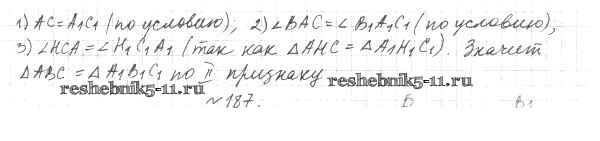 1) AC = A₁C₁ (по условию), 2) ∠BAC = ∠B₁A₁C₁ (по условию),
3) ∠HCA = ∠H₁C₁A₁ (так как △AHC = △A₁H₁C₁). Значит
△ABC = △A₁B₁C₁ по II признаку
reshebnik5-11.ru
reshebnik5-11.ru
№187.
B B₁